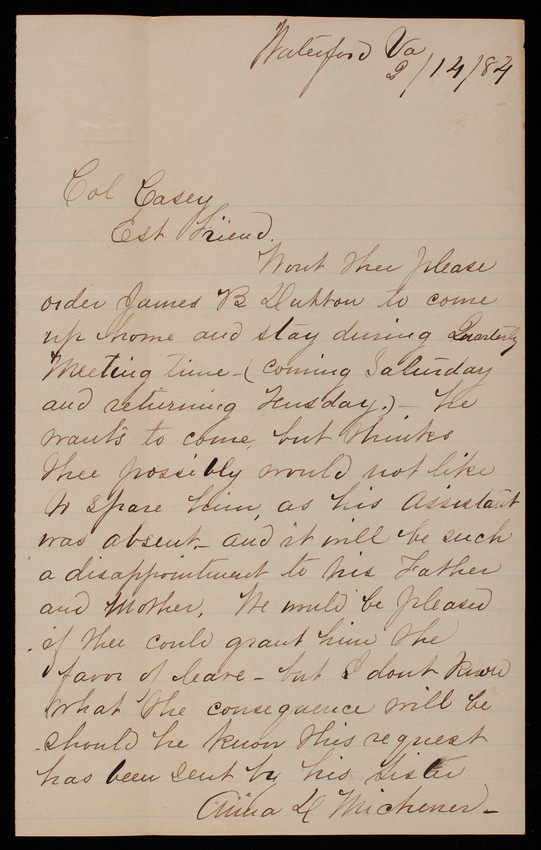 Waterford Va
2/14/84
Col Casey
Est Friend.
Wont thee please
order James B Dutton to come
up home and stay during Quarterly
Meeting time - (coming Saturday
and returning Tuesday.) - he
wants to come, but thinks
thee possibly would not like
to spare him, as his Assistant
was absent - and it will be such
a disappointment to his Father
and Mother. We would be pleased
if thee could grant him the
favor of leave - but I dont know
what the consequence will be
should he know this request
has been sent by his sister
Anna D Michener -